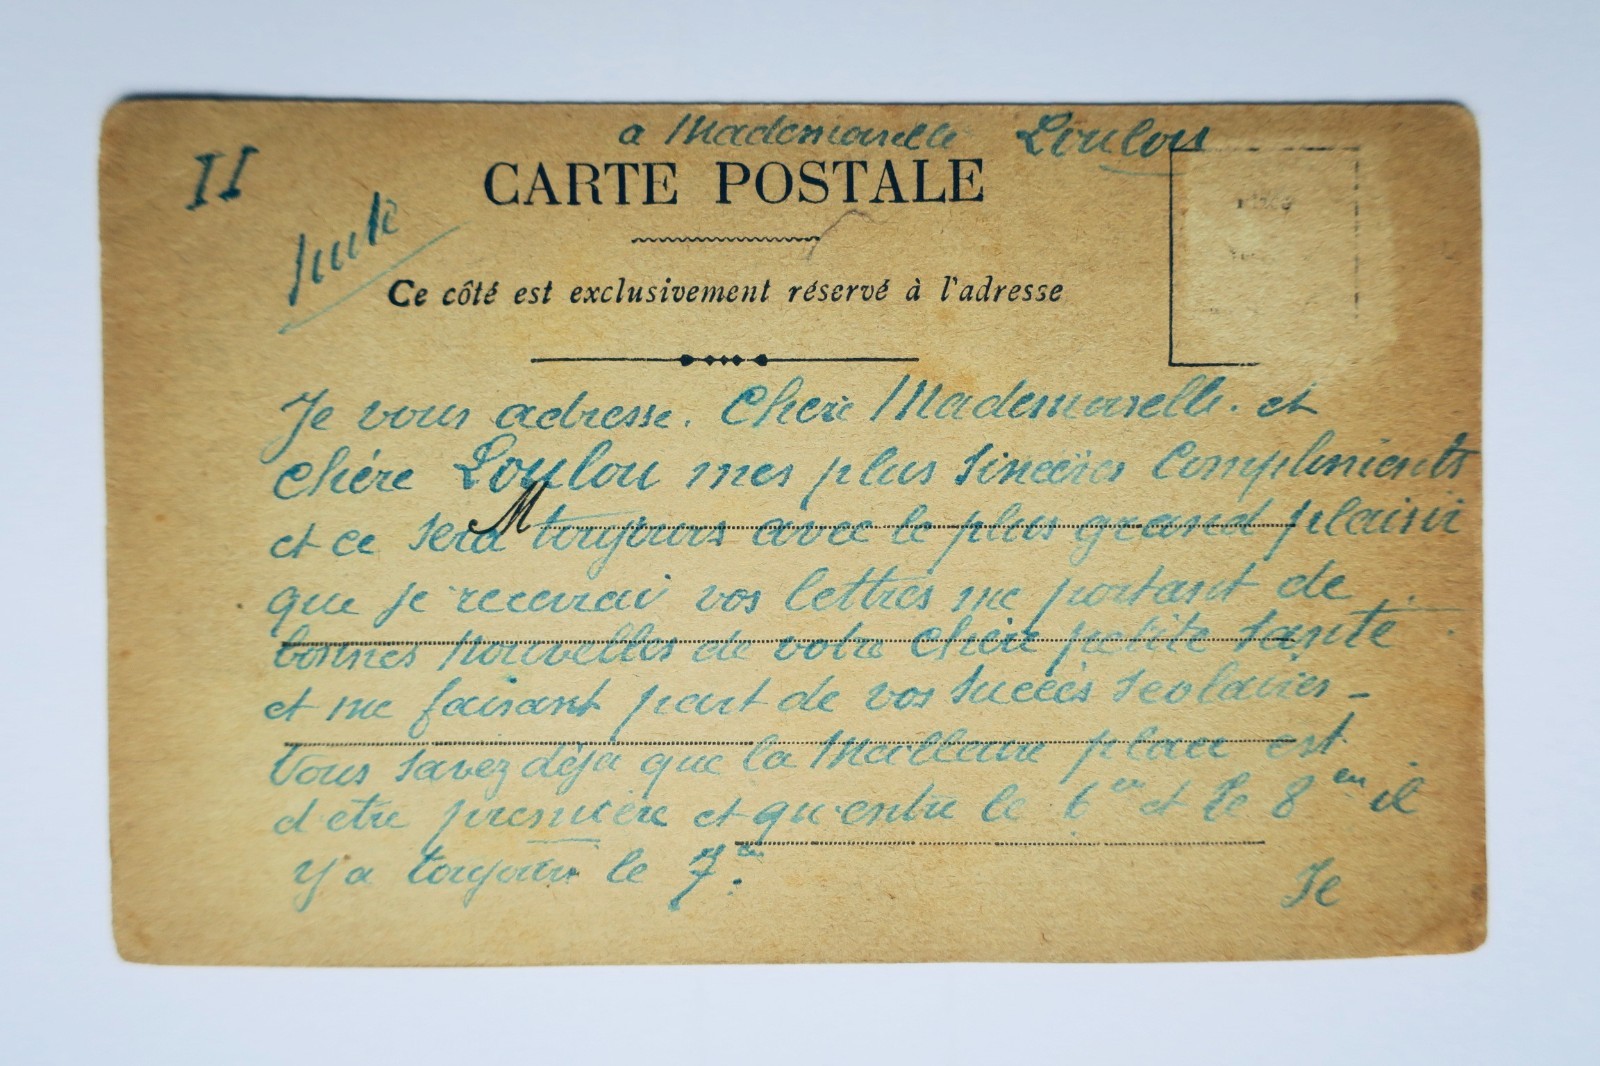 a Mademoiselle Loulou
II
Suite
CARTE POSTALE
Ce côté est exclusivement réservé à l'adresse
Je vous adresse. Chère Mademoiselle. et
Chére Loulou mes plus sincères Compliments
M
et ce sera toujours avec le plus grand plaisir
que je recevrai vos lettres me portant de
bonnes Nouvelles de votre Chère petite santé
et me faisant part de vos succès scolaires –
Vous savez déja que la Meilleure place est
d'etre première et qu'entre le 6en et le 8en il
y a toujours le 7en.
Je